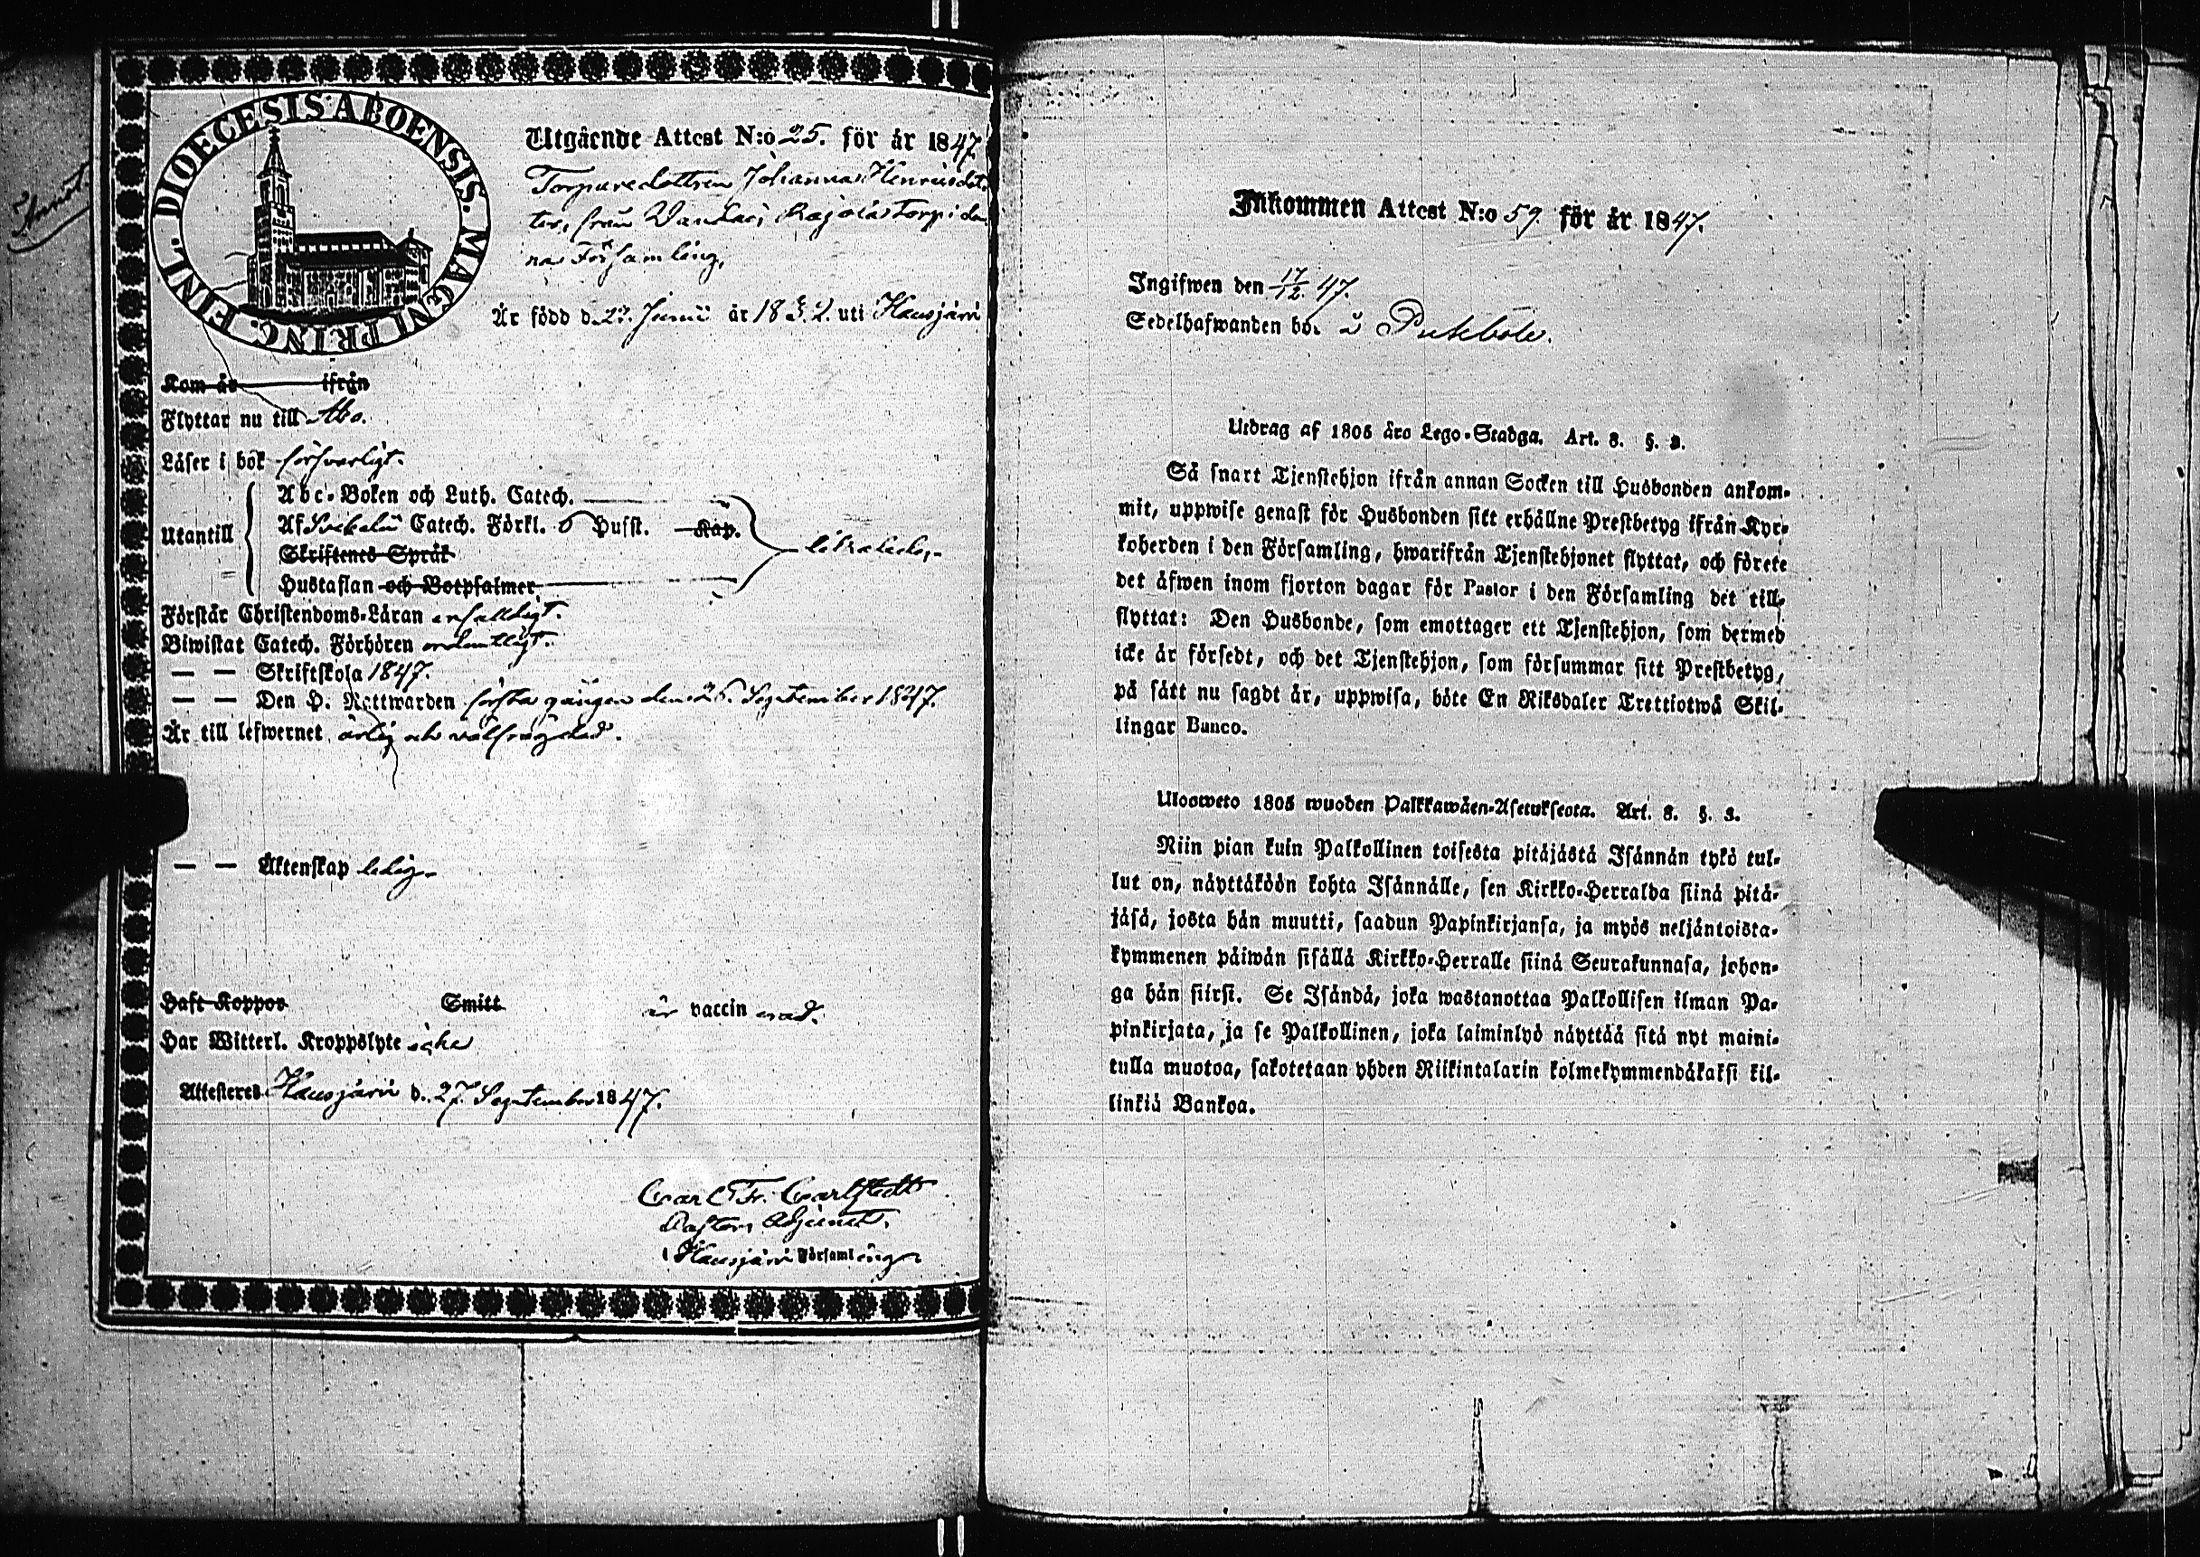 DIOECESIS ABOENSIS. MAGNI PRINC. FINL.
Utgående Attest N:o 25. för år 1847
Torparedottren Johanna Henriksdot-
ter, från Rajalastorp i den-
na Församling,
Är född d. 27. Junii år 1832. uti Hausjärvi
Kom år ifrån
Flyttar nu till Åbo.
Läser i bok försvarligt.
Utantill
Abc-Boken och Luth. Catech.
Af Svebelii Catech. Förkl. 6 Hufst. Kap.
Skriftenes Språk
Hustaflan och Botpsalmer
Förstår Christendoms-Läran enfaldigt.
Biwistat Catech. Förhören ordentligt.
— — Skriftskola 1847.
— — Den H. Nattwarden första gången den 26. September 1847.
Är till lefwernet ärlig och välfrägdad.
— — Äktenskap ledig.
Haft Koppor Smitt är vaccinerad.
Har Witterl. Kroppslyte icke
Attesteras Hausjärvi d. 27. September 1847.
Carl Fr. Carlstedt
Pastors Adjunct.
i Hausjärvi Församling.
Inkommen Attest N:o 59. för år 1847.
Ingifwen den 17/12. 47.
Sedelhafwanden bor å Pukkbole.
Utdrag af 1805 års Lego-Stadga. Art. 8. §. 3.
Så snart Tjenstehjon ifrån annan Socken till Husbonden ankom-
mit, uppwise genast för Husbonden sitt erhållne Prestbetyg ifrån Kyr-
koherden i den Församling, hwarifrån Tjenstehjonet flyttat, och förete
det äfwen inom fjorton dagar för Pastor i den Församling det till-
flyttat: Den Husbonde, som emottager ett Tjenstehjon, som dermed
icke är försedt, och det Tjenstehjon, som försummar sitt Prestbetyg,
på sätt nu sagdt är, uppwisa, böte En Riksdaler Trettiotwå Skil-
lingar Banco.
Ulosweto 1805 wuoden Palkkawäen-Asetuksesta. Art. 8. §. 3.
Niin pian kuin Palkollinen toisesta pitäjästä Isännän tykö tul-
lut on, näyttäköön kohta Isännälle, sen Kirkko-Herralda siinä pitä-
jäsä, josta hän muutti, saadun Papinkirjansa, ja myös neljäntoista-
kymmenen päiwän sisällä Kirkko-Herralle siinä Seurakunnasa, johon-
ga hän siirsi. Se Isändä, joka wastanottaa Palkollisen ilman Pa-
pinkirjata, ja se Palkollinen, joka laiminlyö näyttää sitä nyt maini-
tulla muotoa, sakotetaan yhden Riikintalarin kolmekymmendäkaksi kil-
linkiä Bankoa.